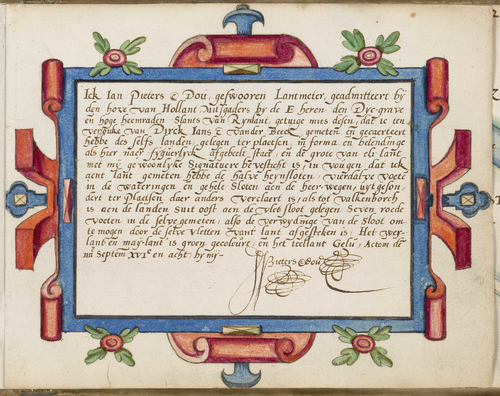 Ick Ian Pieters Dou, geswooren Lantmeter, geadmitteert by
den hove van Hollant Mitsgaders by de E heren den Dyc-grave
en hoge heemraden Slants van Rynlant, getuige mits desen, dat ic ten
versuke van Dyrck Ians vander Beeck gemeten en gecaerteert
hebbe des selfs landen, gelegen ter plaetsen, in forma en belendinge
als hier naer fyguerlyck afgebeelt staet, en de grote van elk lant
met myn gewoonlyke Signature bevesticht is, In voigen dat ick
aent lant gemeten hebbe de halve heynsloten, vierdalve voete
in de wateringen en gehele Sloten aen de heer-wegen, uytgeson
dert ter Plaetsen daer anders verclaert is, als tot valkenborch
is aen de landen suit oost aen de vlet sloot gelegen Seven roede
voeten in de selve gemeten, also de verwydinge van de Sloot om
te mogen door de selve vletten vant lant afgesteken is, Het wer-
lant en may-lant is groen gecoleurt, en het teellant Geel, Actum dē
Septem XVIᶜ en acht, by my-
Pieters Dou